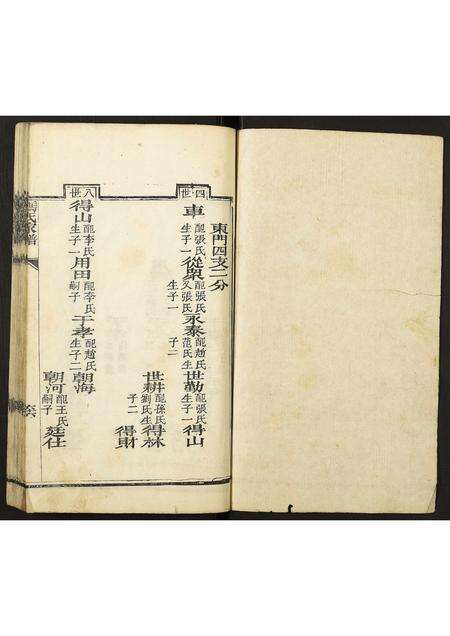 東門四支二分
四世
車
配張氏
生子一
從衆
配張氏
又張氏
生子一
永泰
配趙氏
范氏生
子二
世勤
配張氏
生子一
得山
世耕
配孫氏
劉氏生
子二
得林
得財
八世
得山
配李氏
生子一
用田
配李氏
嗣子
于孝
配趙氏
生子二
朝海
朝河
配王氏
嗣子
廷仕
氏家譜